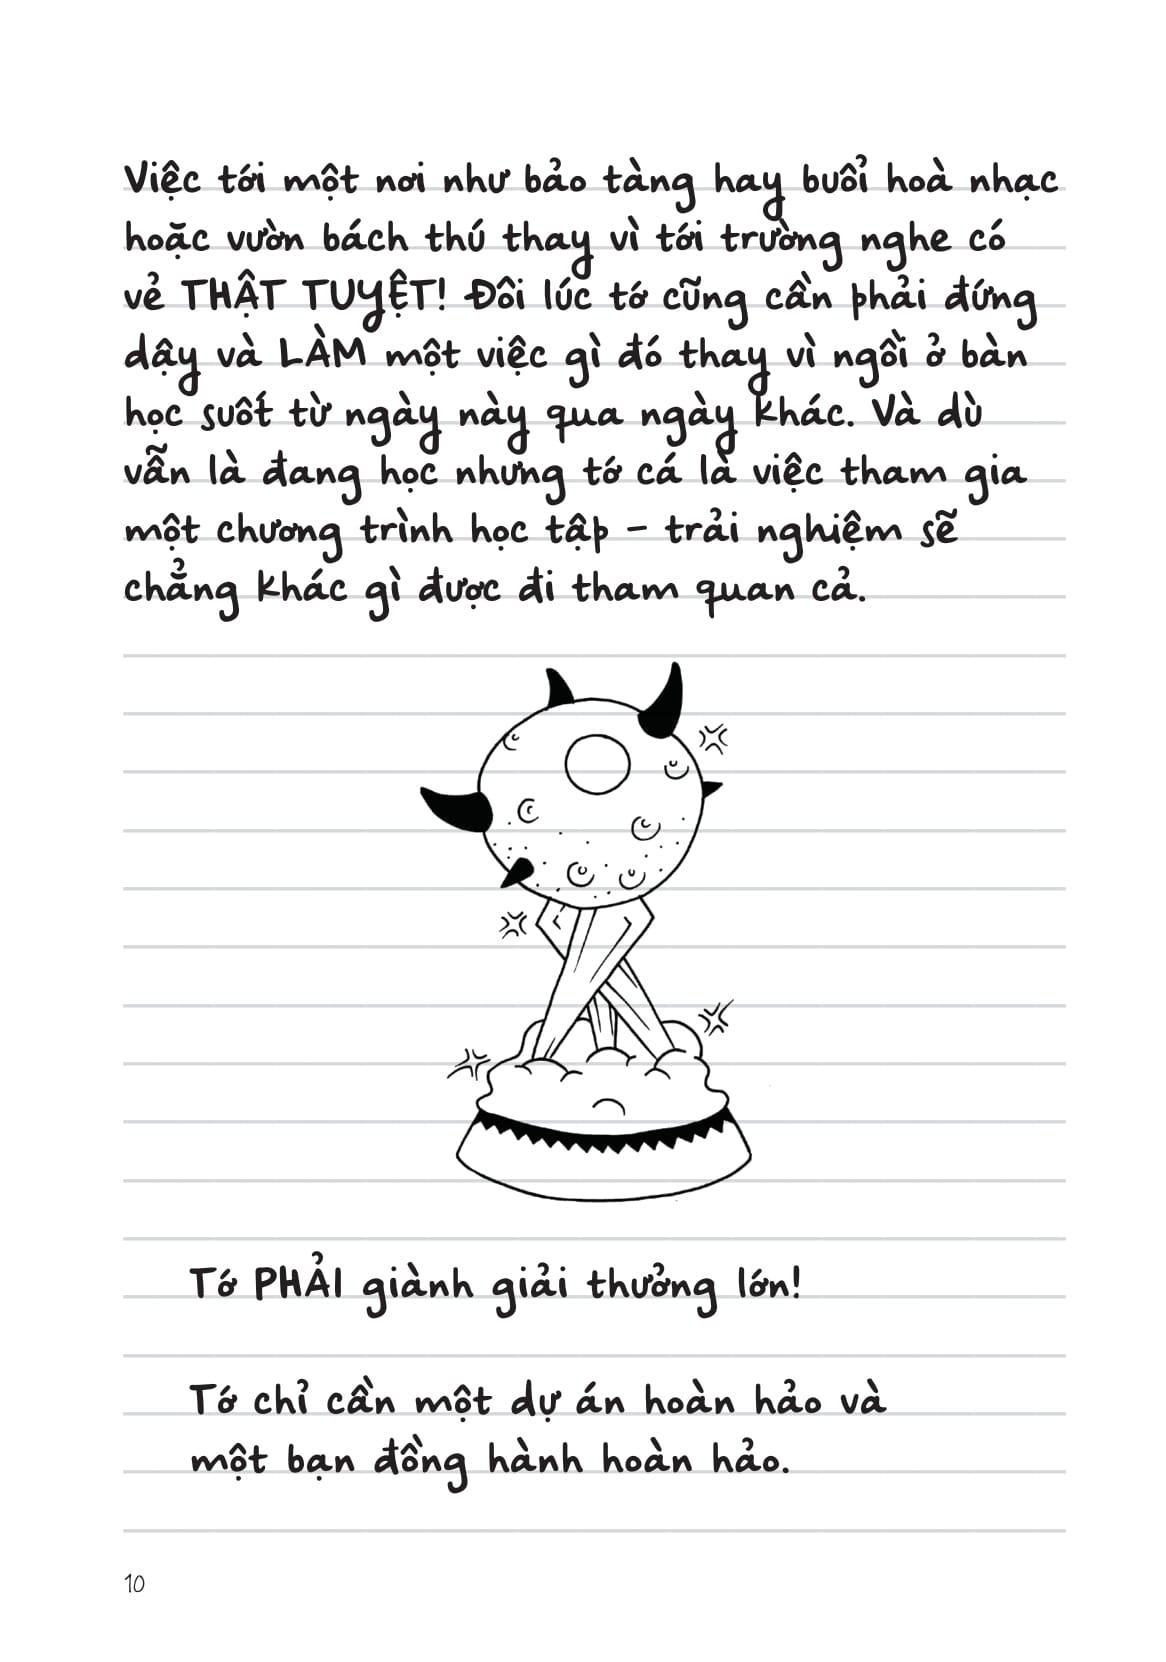 Việc tới một nơi như bảo tàng hay buổi hoà nhạc
hoặc vườn bách thú thay vì tới trường nghe có
vẻ THẬT TUYỆT! Đôi lúc tớ cũng cần phải đứng
dậy và LÀM một việc gì đó thay vì ngồi ở bàn
học suốt từ ngày này qua ngày khác. Và dù
vẫn là đang học nhưng tớ cá là việc tham gia
một chương trình học tập – trải nghiệm sẽ
chẳng khác gì được đi tham quan cả.
Tớ PHẢI giành giải thưởng lớn!
Tớ chỉ cần một dự án hoàn hảo và
một bạn đồng hành hoàn hảo.
10